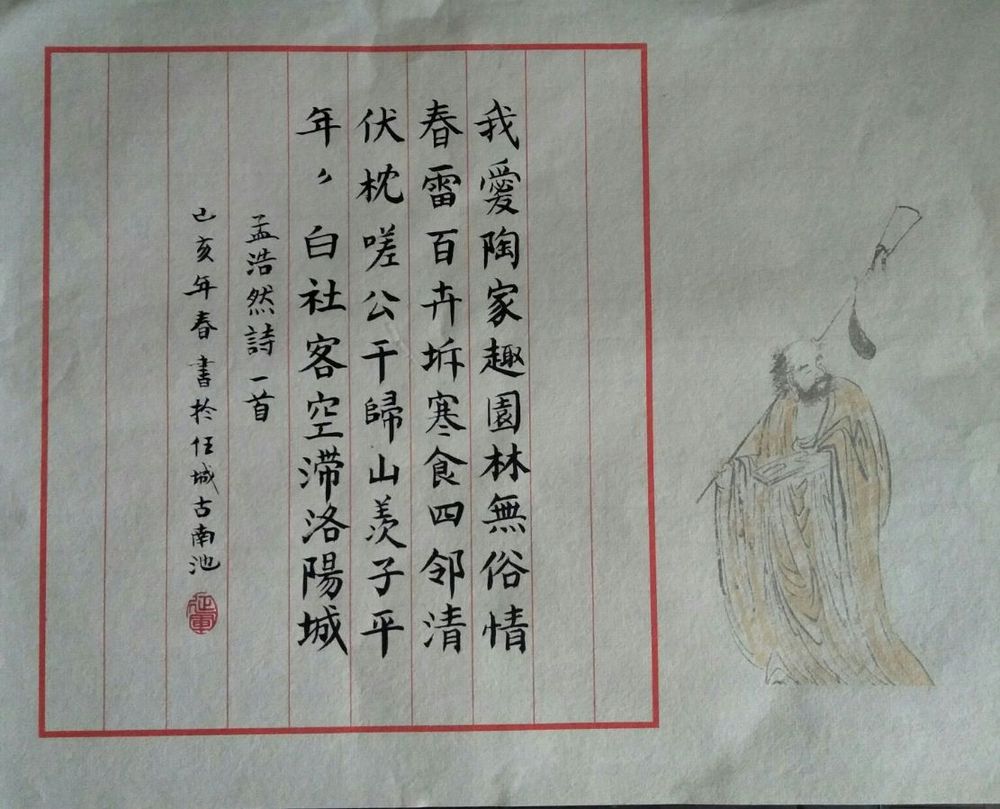 我愛陶家趣園林無俗情
春雷百卉坼寒食四邻清
伏枕嗟公干歸山羨子平
年々白社客空滞洛陽城
孟浩然詩一首
己亥年春書於任城古南池